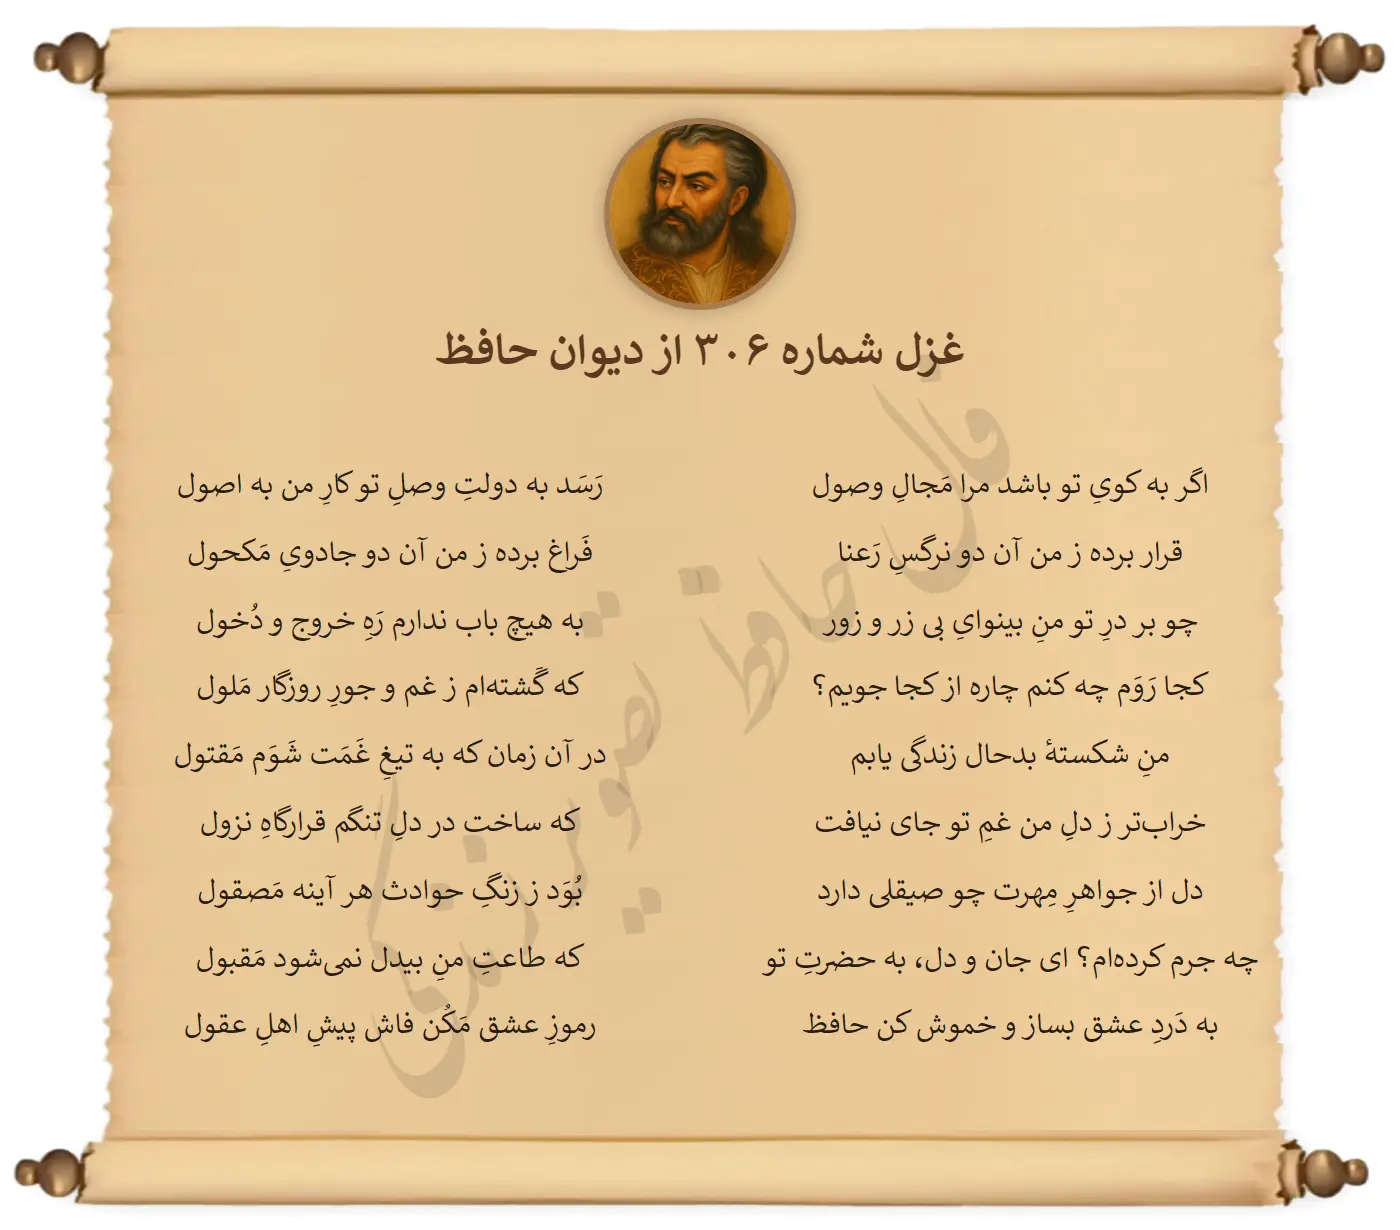 غزل شماره ۳۰۶ از دیوان حافظ
اگر به کویِ تو باشد مرا مَجالِ وصول
رَسَد به دولتِ وصلِ تو کارِ من به اصول
قرار برده ز من آن دو نرگسِ رَعنا
فَراغ برده ز من آن دو جادویِ مَکحول
چو بر درِ تو منِ بینوایِ بی زر و زور
به هیچ باب ندارم رَهِ خروج و دُخول
کجا رَوَم چه کنم چاره از کجا جویم؟
که گَشته‌ام ز غم و جورِ روزگار مَلول
منِ شکستهٔ بدحال زندگی یابم
در آن زمان که به تیغِ غَمَت شَوَم مَقتول
خراب‌تر ز دلِ من غمِ تو جای نیافت
که ساخت در دلِ تنگم قرارگاهِ نزول
دل از جواهرِ مِهرت چو صیقلی دارد
بُوَد ز زنگِ حوادث هر آینه مَصقول
چه جرم کرده‌ام؟ ای جان و دل، به حضرتِ تو
که طاعتِ منِ بیدل نمی‌شود مَقبول
به دَردِ عشق بساز و خموش کن حافظ
رموزِ عشق مَکُن فاش پیشِ اهلِ عقول
فال حافظ تصویر زندگی